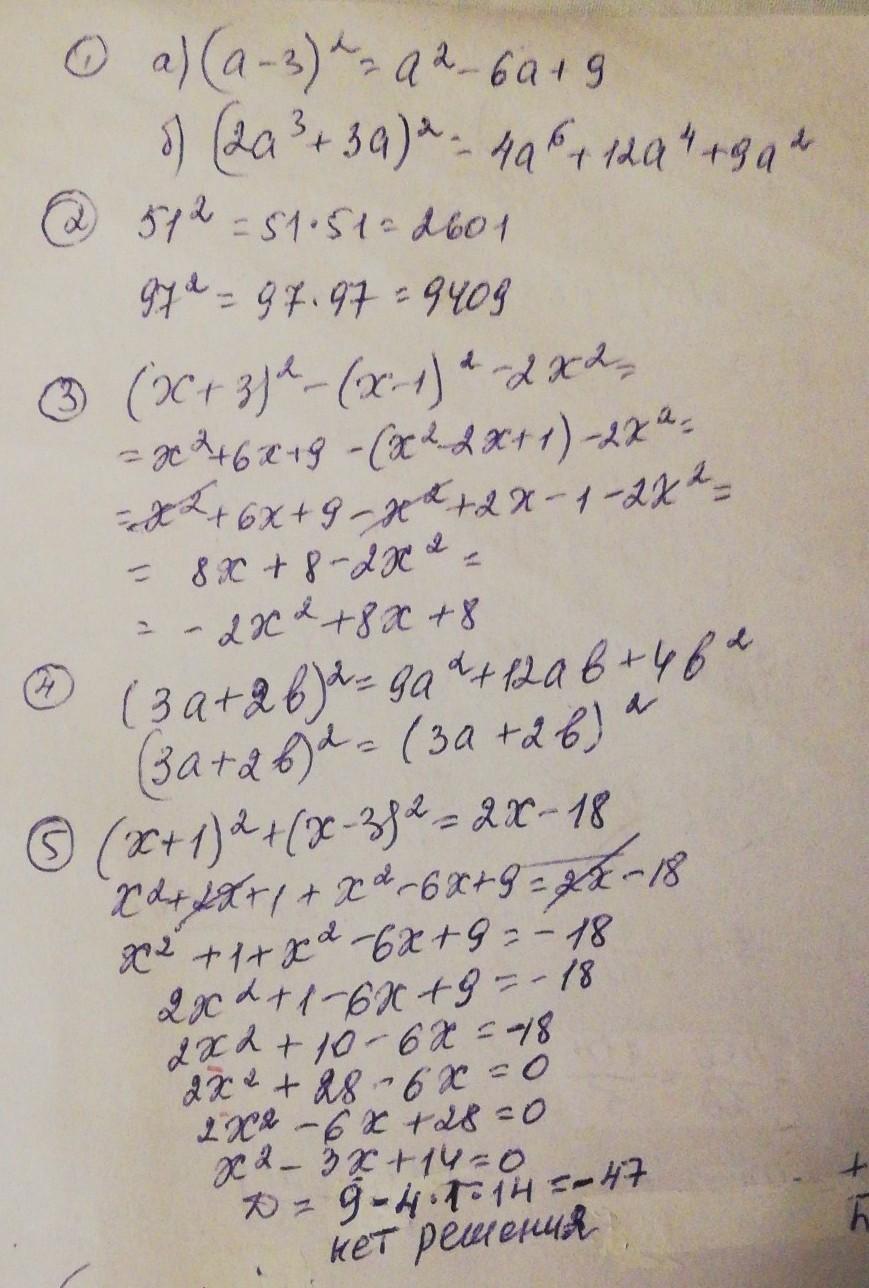 ① а) (a-3)² = a² - 6a + 9
б) (2a³ + 3a)² = 4a⁶ + 12a⁴ + 9a²
② 51² = 51·51 = 2601
97² = 97·97 = 9409
③ (x+3)² - (x-1)² - 2x² =
= x² + 6x + 9 - (x² - 2x + 1) - 2x² =
= x² + 6x + 9 - x² + 2x - 1 - 2x² =
= 8x + 8 - 2x² =
= - 2x² + 8x + 8
④ (3a + 2b)² = 9a² + 12ab + 4b²
(3a + 2b)² = (3a + 2b)²
⑤ (x+1)² + (x-3)² = 2x - 18
x² + 2x + 1 + x² - 6x + 9 = 2x - 18
x² + 1 + x² - 6x + 9 = - 18
2x² + 1 - 6x + 9 = - 18
2x² + 10 - 6x = -18
2x² + 28 - 6x = 0
2x² - 6x + 28 = 0
x² - 3x + 14 = 0
D = 9 - 4·1·14 = -47
нет решения